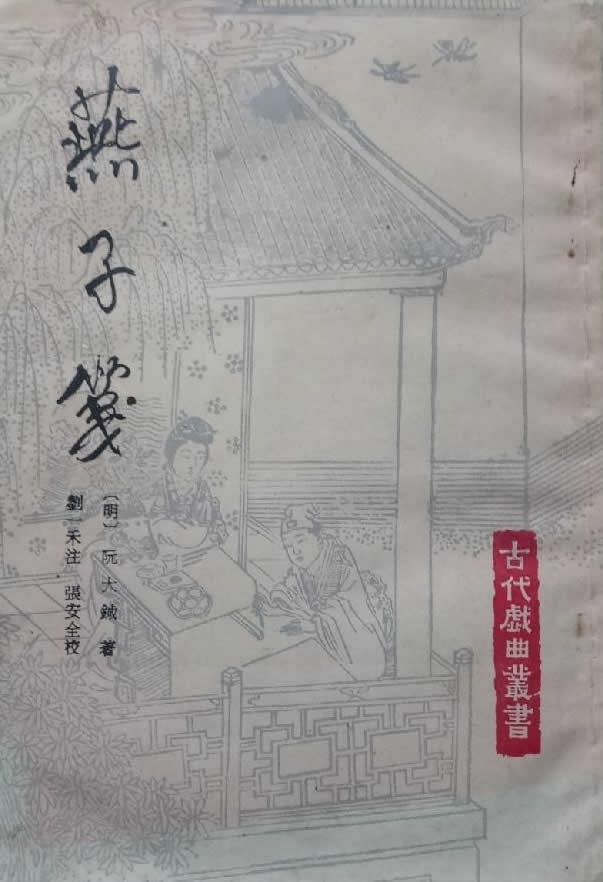 燕子箋
〔明〕阮大鋮著
劉一禾注 張安全校
古代戲曲叢書